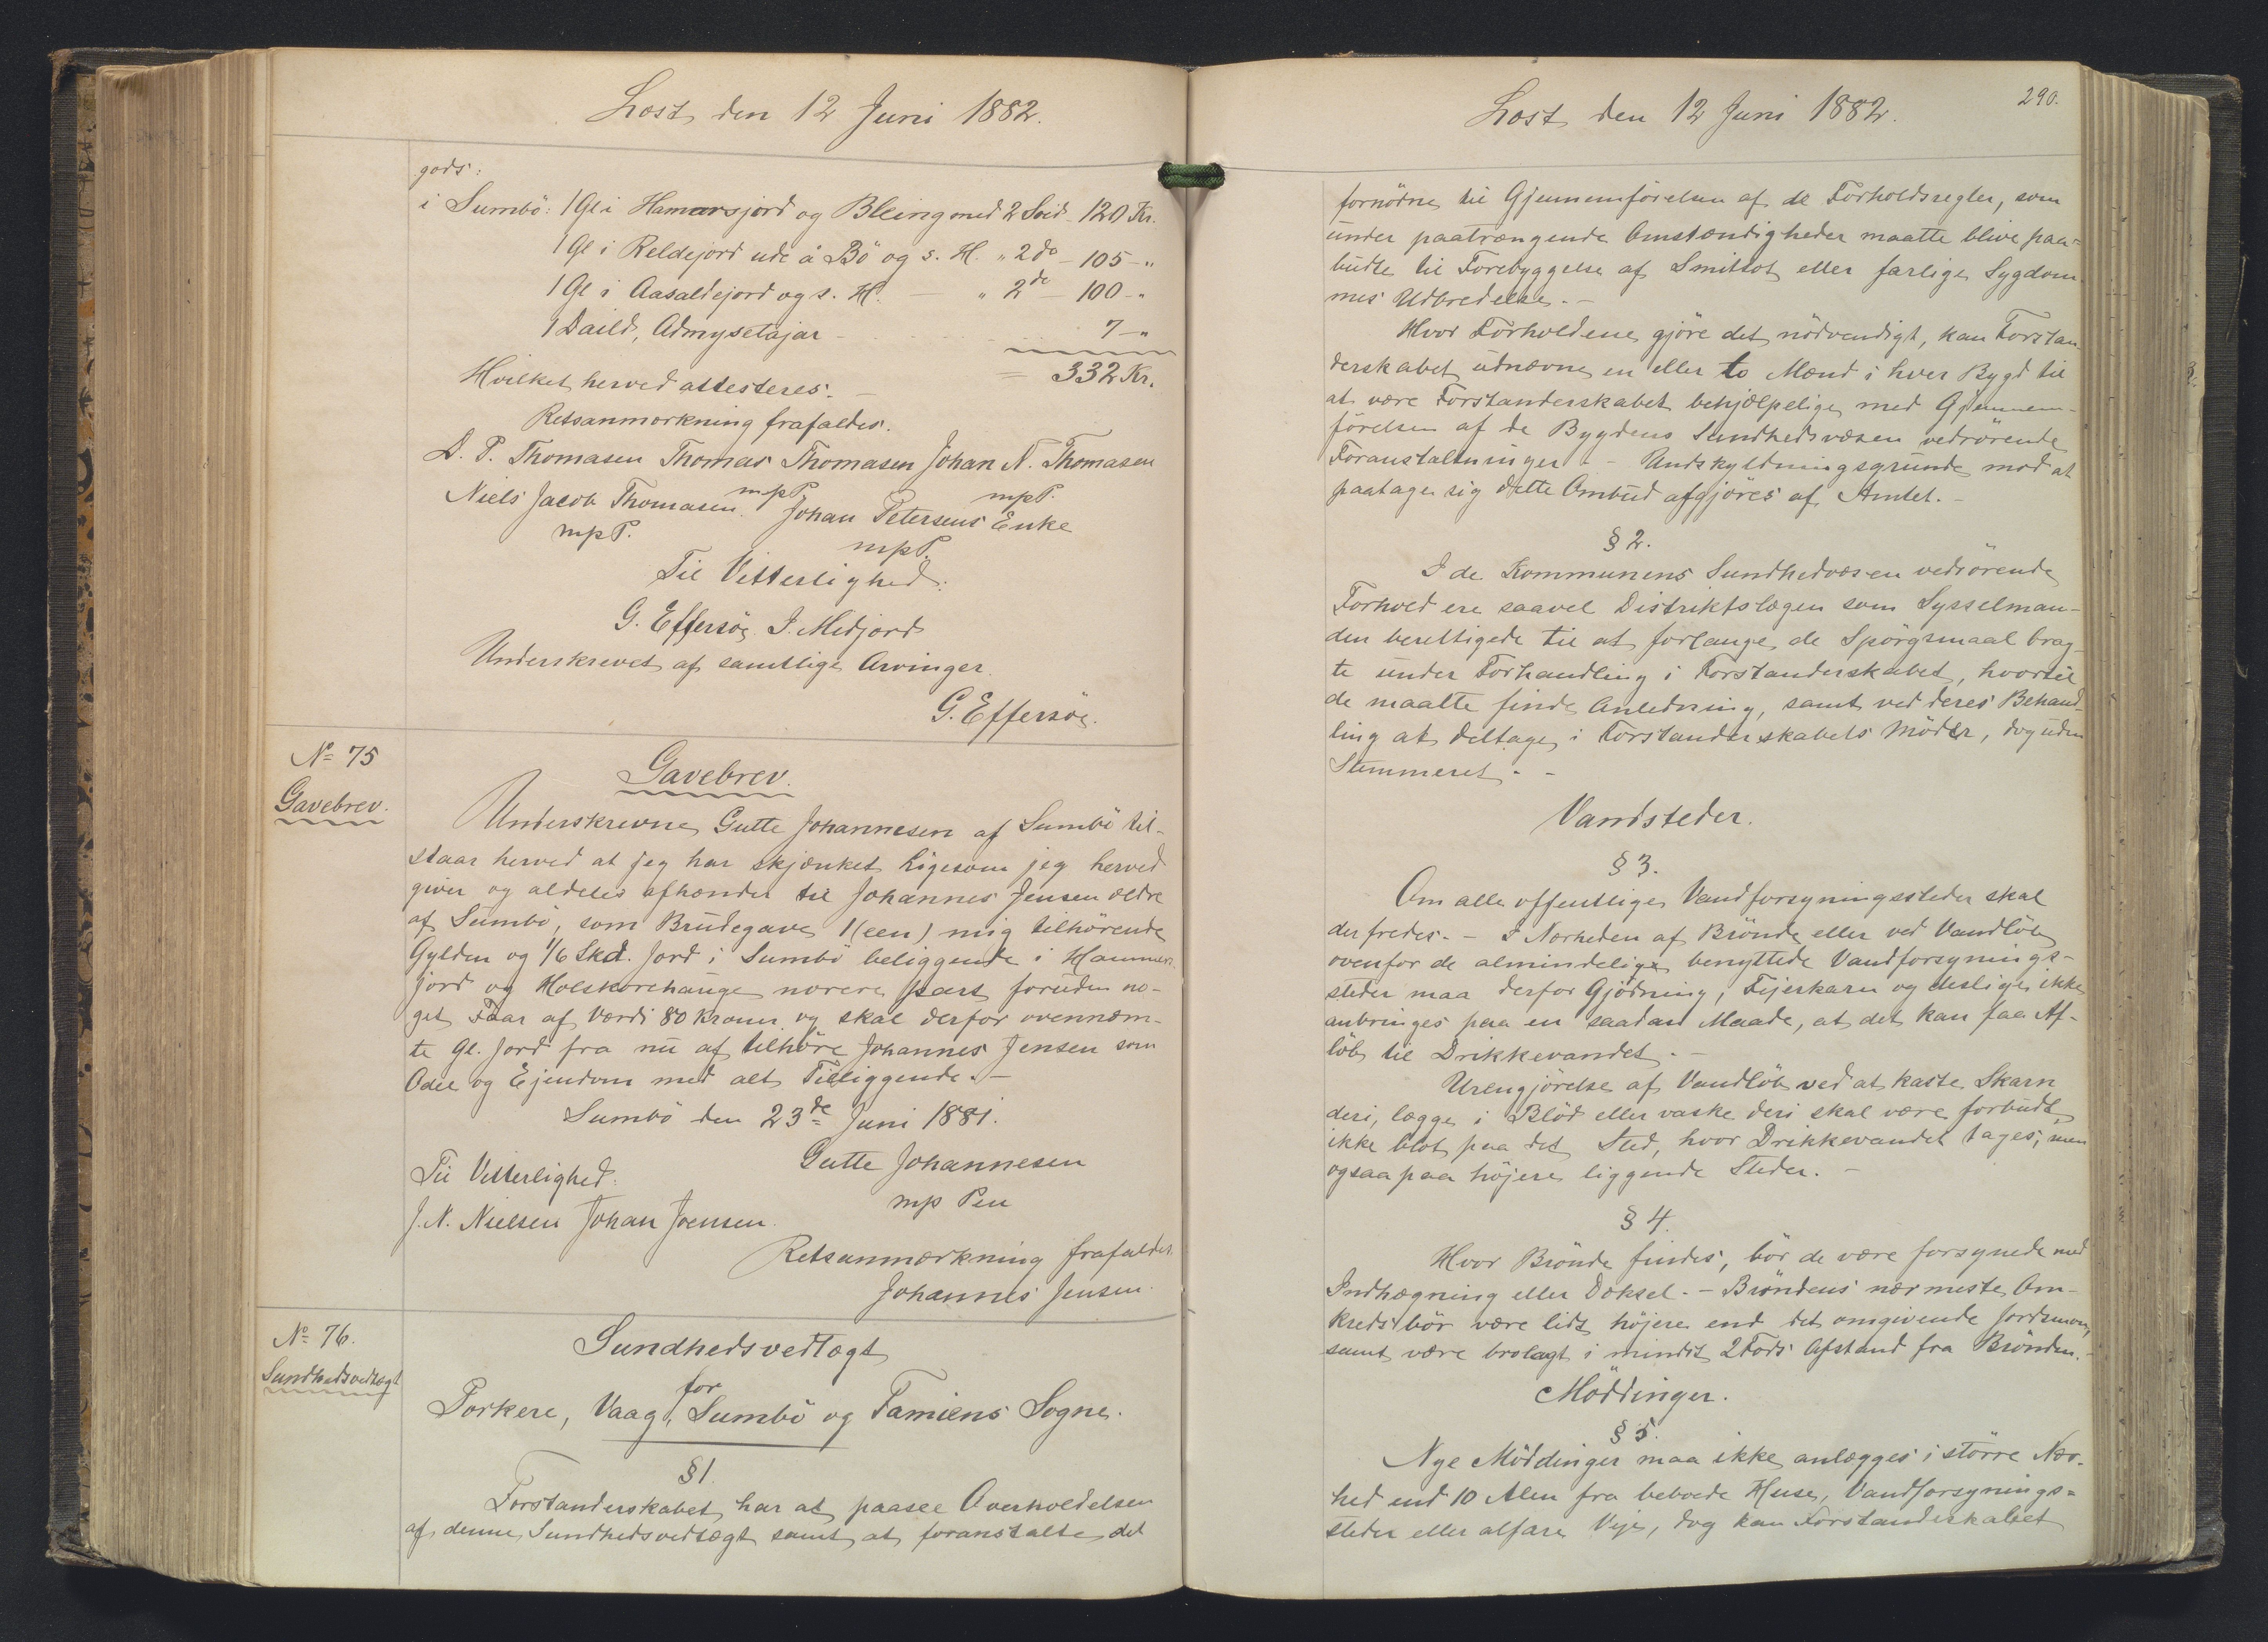 Læst den 12 Juni 1882.
gods:
i Sumbö: 1 Gl i Hamarsjord og Bleing med 2 Svid - 120 Kr.
1 Gl i Reldejord ude å Bö og s. H. " 2 do - 105 - "
1 Gl i Aasaldejord og s. H. — " 2 do - 100 - "
1 Daild, Admysetajar - 7 - "
= 332 Kr.
Hvilket herved attesteres. -
Retsanmærkning frafaldes.
D. P. Thomasen Thomas Thomasen Johan N. Thomasen
mpP. mpP.
Niels Jacob Thomasen Johan Petersens Enke
mpP. mpP.
Til Vitterlighed:
G. Effersöe J. Midjord
Underskrevet af samtlige Arvinger.
G. Effersöe.
No 75
Gavebrev.
Gavebrev.
Underskrevne Gutte Johannesen af Sumbö til-
staar herved at jeg har skjænket ligesom jeg herved
giver og aldeles afhænder til Johannes Jensen ældre
af Sumbö, som Brudegave 1 (een) mig tilhörende
Gylden og 1/6 Skd. Jord i Sumbö beliggende i Hammer-
jord og Holskorehauge nörere part foruden no-
get Faar af Værdi 80 Kroner og skal derfor ovennæm-
te Gl. Jord fra nu af tilhöre Johannes Jensen som
Odel og Ejendom med alt Tilliggende. -
Sumbö den 23de Juni 1881.
Til Vitterlighed: Gutte Johannesen
mp Pen
J. N. Nielsen Johan Joensen.
Retsanmærkning frafaldes.
Johannes Jensen.
No 76.
Sundhedsvedtægt
Sundhedsvedtægt
for
Porkere, Vaag, Sumbö og Famiens Sogne.
§ 1.
Forstanderskabet har at paasee Overholdelsen
af denne Sundhedsvedtægt samt at foranstalte det
Læst den 12 Juni 1882.
290.
fornödne til Gjennemförelsen af de Forholdsregler, som
under paatrængende Omstændigheder maatte blive paa-
budte til Forebyggelse af Smitsot eller farlige Sygdom-
mes Udbredelse. -
Hvor Forholdene gjöre det nödvendigt, kan Forstan-
derskabet udnævne en eller to Mænd i hver Bygd til
at være Forstanderskabet behjælpelige med Gjennem-
förelsen af de Bygdens Sundhedsvæsen vedrörende
Foranstaltninger. - Undskyldningsgrunde mod at
paatage sig dette Ombud afgjöres af Amtet. -
§ 2.
I de Kommunens Sundhedvæsen vedrörende
Forhold ere saavel Distriktslægen som Sysselman-
den berettigede til at forlange de Spörgsmaal brag-
te under Forhandling i Forstanderskabet, hvortil
de maatte finde Anledning, samt ved deres Behand-
ling at deltage i Forstanderskabets Möder, dog uden
Stemmeret. -
Vandsteder.
§ 3.
Om alle offentlige Vandforsyningssteder skal
der fredes. - I Nærheden af Brönde eller ved Vandlöb
ovenfor de almindelige benyttede Vandforsynings-
steder maa derfor Gjödning, Fejerskarn og deslige ikke
anbringes paa en saadan Maade, at det kan faa Af-
löb til Drikkevandet. -
Urengjörelse af Vandlöb ved at kaste Skarn
deri, lægge i Blöd eller vaske deri skal være forbudt
ikke blot paa det Sted, hvor Drikkevandet tages, men
ogsaa paa höjere liggende Steder. -
§ 4.
Hvor Brönde findes, bör de være forsynede med
Indhegning eller Dæksel. - Bröndens nærmeste Om-
kreds bör være lidt höjere end det omgivende Jordsmon,
samt være brolagt i mindst 2 Fods Afstand fra Brönden. -
Möddinger.
§ 5.
Nye Möddinger maa ikke anlægges i större Nær-
hed end 10 Alen fra beboede Huse, Vandforsynings-
steder eller alfare Veje, dog kan Forstanderskabet